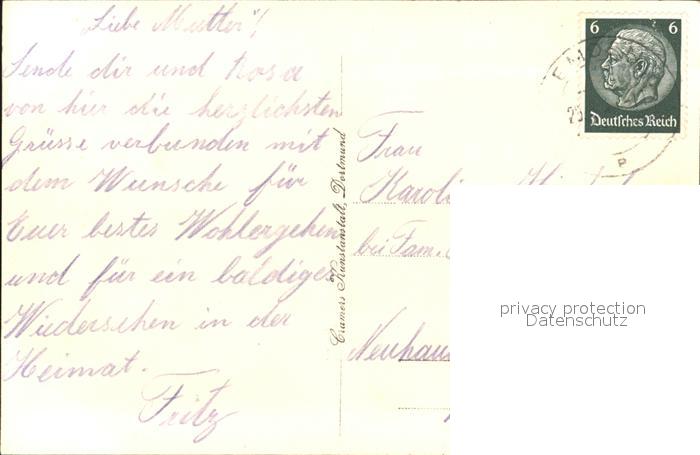 „Liebe Mutter"!
Sende dir und Rosa
von hier die herzlichsten
Grüsse verbunden mit
dem Wunsche für
Euer bestes Wohlergehen
und für ein baldiges
Wiedersehen in der
Heimat.
Fritz
Cramers Kunstanstalt, Dortmund
6 6
Deutsches Reich
Frau
bei Fam.
privacy protection
Datenschutz